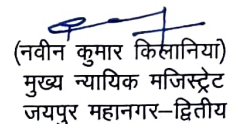 (नवीन कुमार किलानिया)
मुख्य न्यायिक मजिस्ट्रेट
जयपुर महानगर–द्वितीय